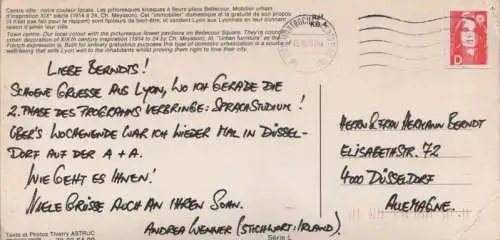 Centre ville, notre couleur locale. Les pittoresques kiosques à fleurs place Bellecour. Mobilier urbain
d'inspiration XIXe (1914 à 24 Ch. Meysson). Cet "immobilier" domestique à la gratuité de son propos
(il n'est pas fait pour le rapport) sont facteurs de bien-être, et vantent Lyon aux Lyonnais en leur donnant
Town centre. Our local colour with the picturesque flower pavilions on Bellecour Square. They're
urban decoration of XIXth century inspiration (1914 to 24 by Ch. Meysson). "Urban furniture" as the
French expression is. Both for entirely gratuitous purposes this type of domestic urbanisation is a source of
well-being that sells Lyon well to the inhabitants whilst proving them right to love living there.
LIEBE BERNDTS!
SCHOENE GRUESSE AUS LYON, WO ICH GERADE DIE
2. PHASE DES PROGRAMMS VERBRINGE: SPRACHSTUDIUM!
ÜBER'S WOCHENENDE WAR ICH WIEDER MAL IN DÜSSEL-
DORF AUF DER A + A.
WIE GEHT ES IHNEN?
VIELE GRÜSSE AUCH AN IHREN SOHN.
ANDREA WENNER (STICHWORT: IRLAND).
HERRN & FRAU HERMANN BERNDT
ELISABETHSTR. 72
4000 DÜSSELDORF
ALLEMAGNE.
D
Textes et Photos Thierry ASTRUC
Série L